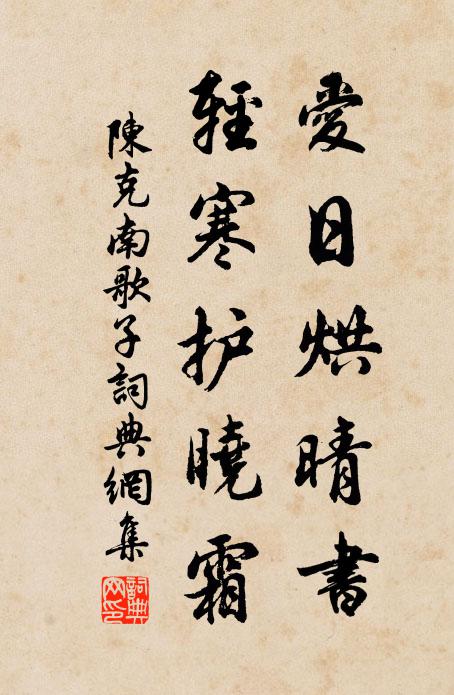 愛日烘晴書
輕寒护曉霜
陳克南歌子詞典網集
詞典网印